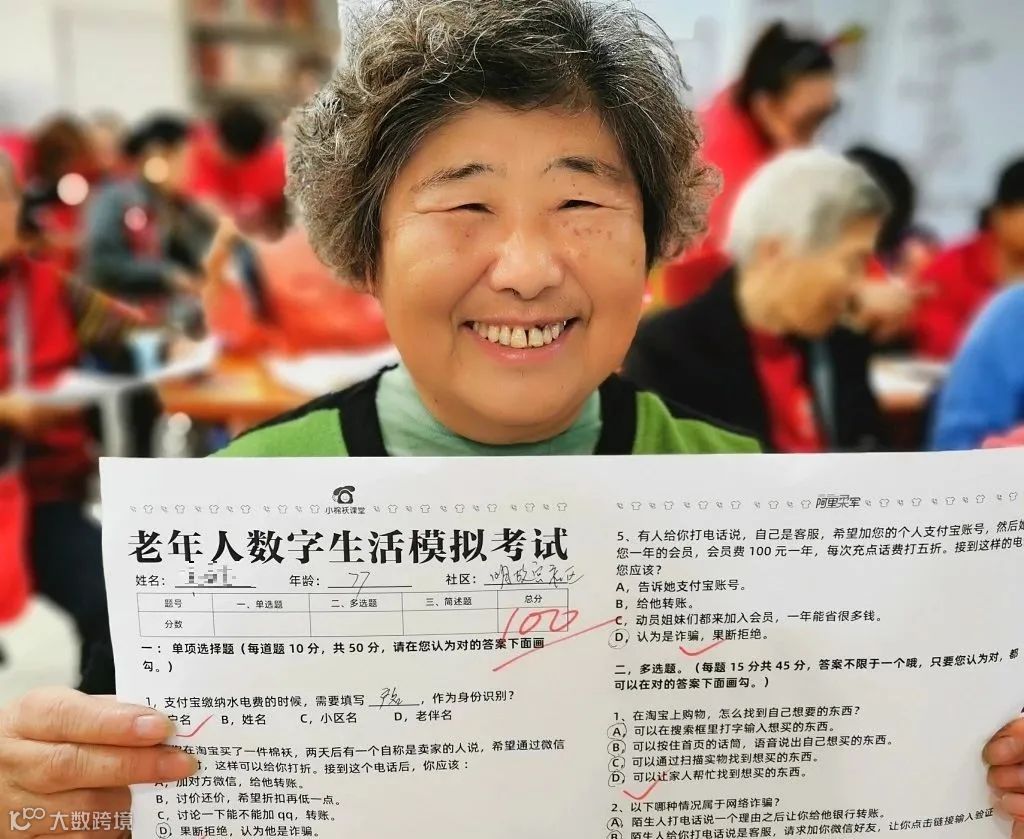 小棉袄课堂
老年人数字生活模拟考试
姓名：
年龄：77
社区：明故宫社区
题号 一、单选题 二、多选题 三、简述题 总分
分数 100
一：单项选择题（每道题 10 分，共 50 分，请在您认为对的答案下面画
勾。）
1，支付宝缴纳水电费的时候，需要填写 ，作为身份识别？
户名 B，姓名 C，小区名 D，老伴名
在淘宝买了一件棉袄，两天后有一个自称是卖家的人说，希望通过微信
，这样可以给你打折。接到这个电话后，你应该：
A，加对方微信，给他转账。
B，讨价还价，希望折扣再低一点。
C，讨论一下能不能加 qq，转账。
D，果断拒绝，认为他是诈骗。
阿里
5、有人给你打电话说，自己是客服，希望加您的个人支付宝账号，然后
您一年的会员，会员费 100 元一年，每次充点话费打五折。接到这样的电
您应该？
A，告诉她支付宝账号。
B，给他转账。
C，动员姐妹们都来加入会员，一年能省很多钱。
D，认为是诈骗，果断拒绝。
二，多选题。（每题 15 分共 45 分，答案不限于一个哦，只要您认为对，都
可以在对的答案下面画勾。）
1、在淘宝上购物，怎么找到自己想要的东西？
A，可以在搜索框里打字输入想买的东西。
B，可以按住首页的话筒，语音说出自己想买的东西。
C，可以通过扫描实物找到想买的东西。
D，可以让家人帮忙找到想买的东西。
2、以下哪种情况属于网络诈骗？
A，陌生人打电话说一个理由之后让你给他银行转账。
B，陌生人给你打电话说是客服，请求加你微信好友，让你点击链接输入验证
大数跨境